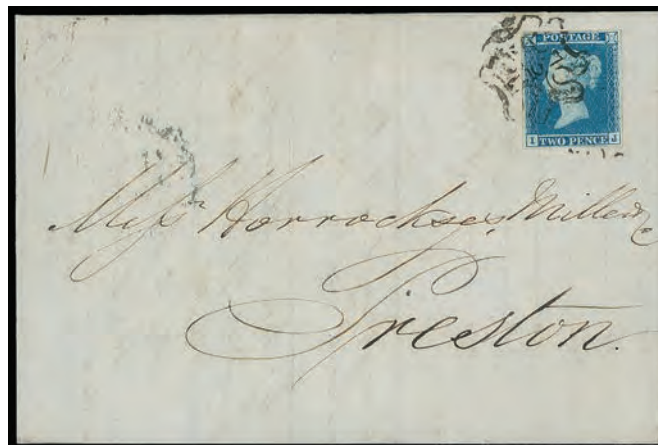 POSTAGE
I J
TWO PENCE
Mess^rs Horrockses, Miller & Co
Preston.